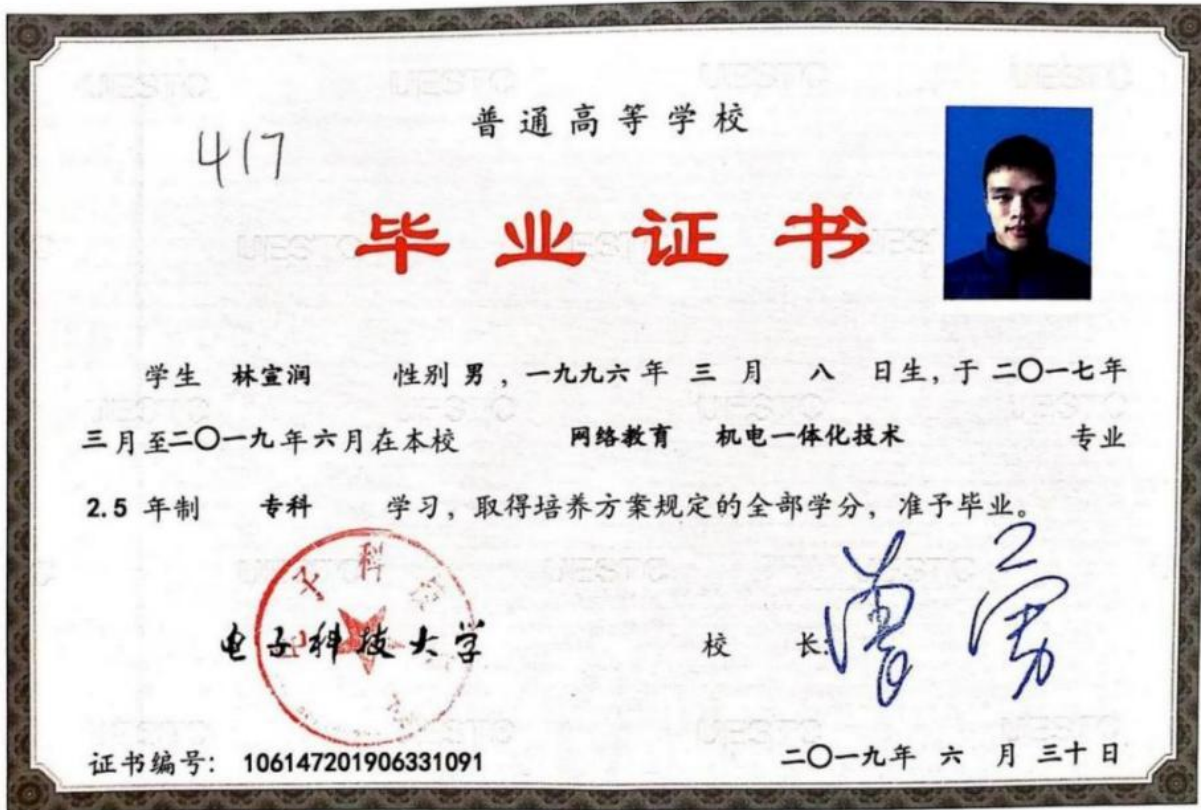 普通高等学校
417
毕业证书
学生 林宣润 性别 男，一九九六年 三 月 八 日生，于 二〇一七年
三月至二〇一九年六月在本校 网络教育 机电一体化技术 专业
2.5 年制 专科 学习，取得培养方案规定的全部学分，准予毕业。
电子科技大学
校 长: 曾勇
证书编号: 106147201906331091
二〇一九年 六 月 三十 日